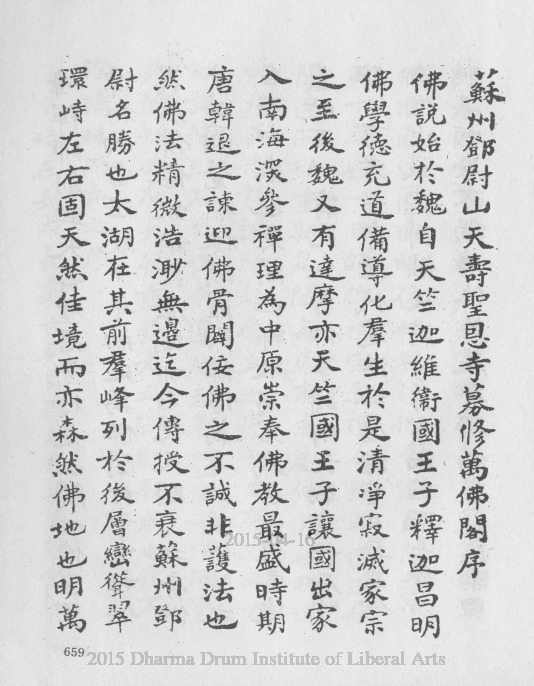 蘇州鄧尉山天壽聖恩寺募修萬佛閣序
佛説始於魏自天竺迦維衛國王子釋迦昌明
佛學德充道備導化羣生於是清淨寂滅家宗
之至後魏又有達摩亦天竺國王子讓國出家
入南海深參禪理為中原崇奉佛教最盛時期
唐韓退之諫迎佛骨闢佞佛之不誠非護法也
然佛法精微浩渺無邊迄今傳授不衰蘇州鄧
尉名勝也太湖在其前羣峰列於後層巒聳翠
環峙左右固天然佳境而亦森然佛地也明萬
2015-04-16
659
2015 Dharma Drum Institute of Liberal Arts